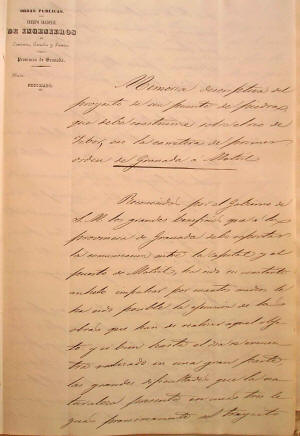 OBRAS PUBLICAS.
CUERPO NACIONAL
DE INGENIEROS
de Caminos, Canales y Puertos.
Provincia de Granada.
NEGOCIADO.
Memoria descriptiva del
proyecto de un puente de piedra
que debe construirse sobre el rio de
en la carretera de primer
orden de Granada á Motril
por el Gobierno de
S. M. los grandes beneficios que á la
provincia de Granada debe reportar
la comunicacion entre la capital y el
puerto de Motril, ha sido su constante
anhelo impulsar por cuantos medios le
ha sido posible la ejecucion de las
obras que han de realizar aquel obje-
to y si bien hasta el dia se encuen-
tra realizado en una gran parte
las grandes dificultades que la na-
turaleza presenta en
el trayecto